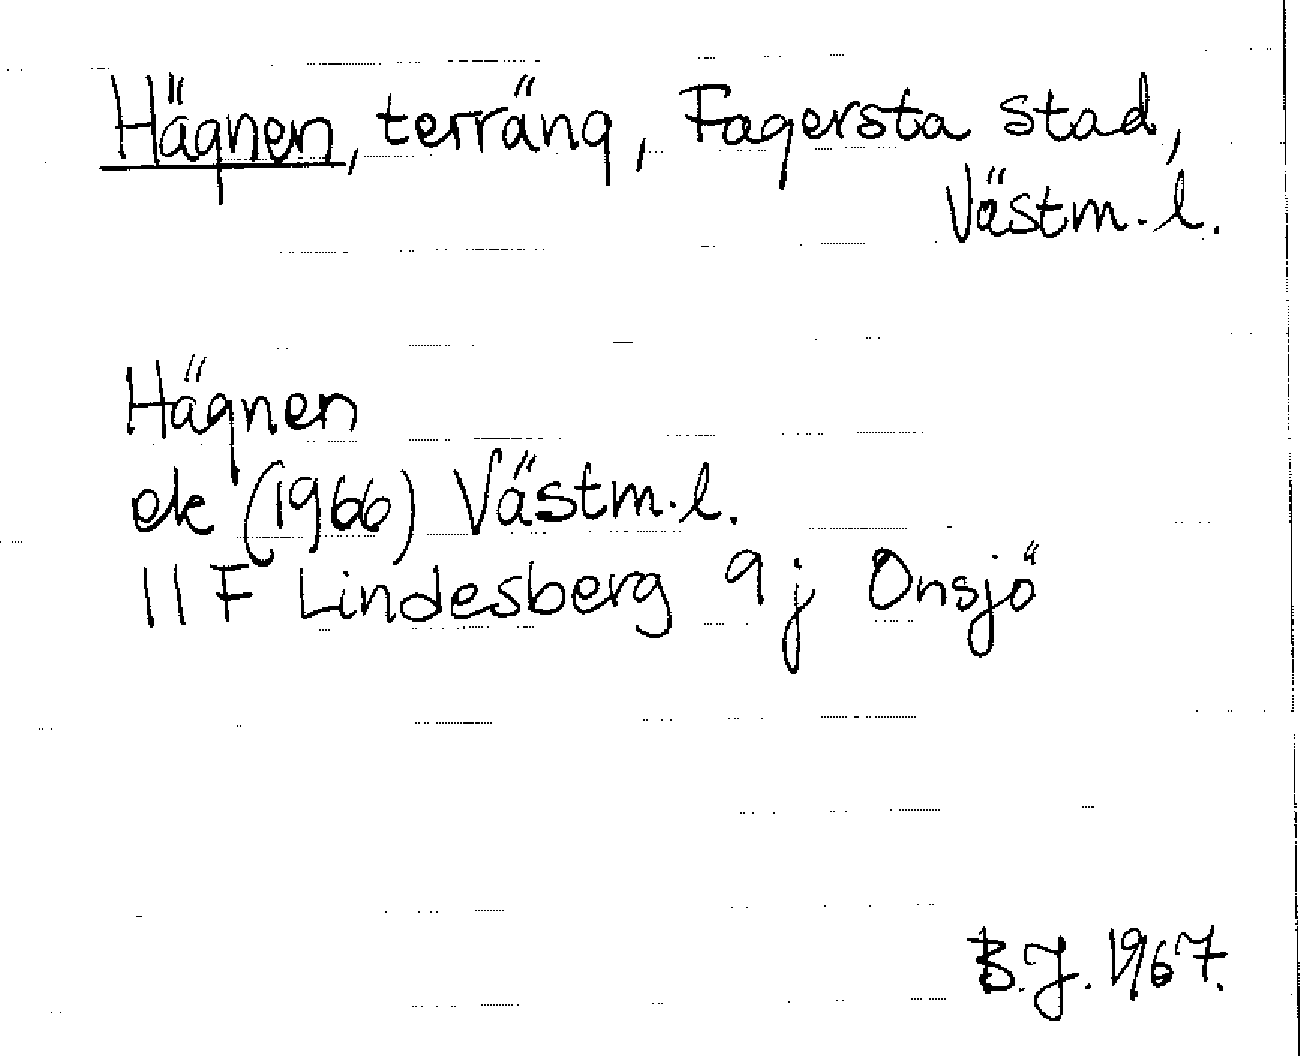 Hägnen, terräng, Fagersta stad,
Västm. l.
Hägnen
ek (1966) Västm. l.
11 F Lindesberg 9 j Onsjö
B.J. 1967.